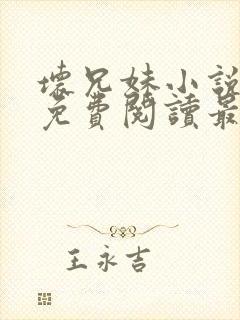 壞兄妹小說
免費閱讀最
王永吉